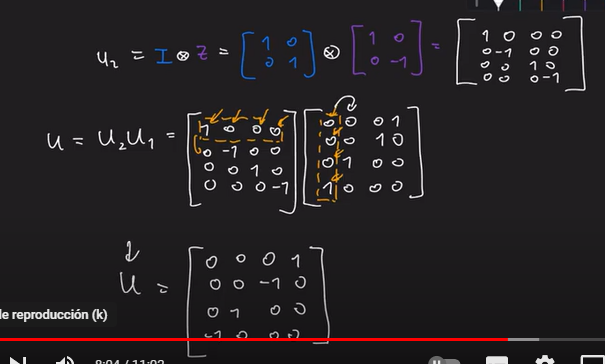 U₂ = I ⊗ Z = [1 0; 0 1] ⊗ [1 0; 0 -1] = [1 0 0 0; 0 -1 0 0; 0 0 1 0; 0 0 0 -1]
U = U₂U₁ = [1 0 0 0; 0 -1 0 0; 0 0 1 0; 0 0 0 -1] [0 0 0 1; 0 0 1 0; 0 1 0 0; 1 0 0 0]
U = [0 0 0 1; 0 0 -1 0; 0 1 0 0; -1 0 0 0]
de reproducción (k)
8:04 / 11:02